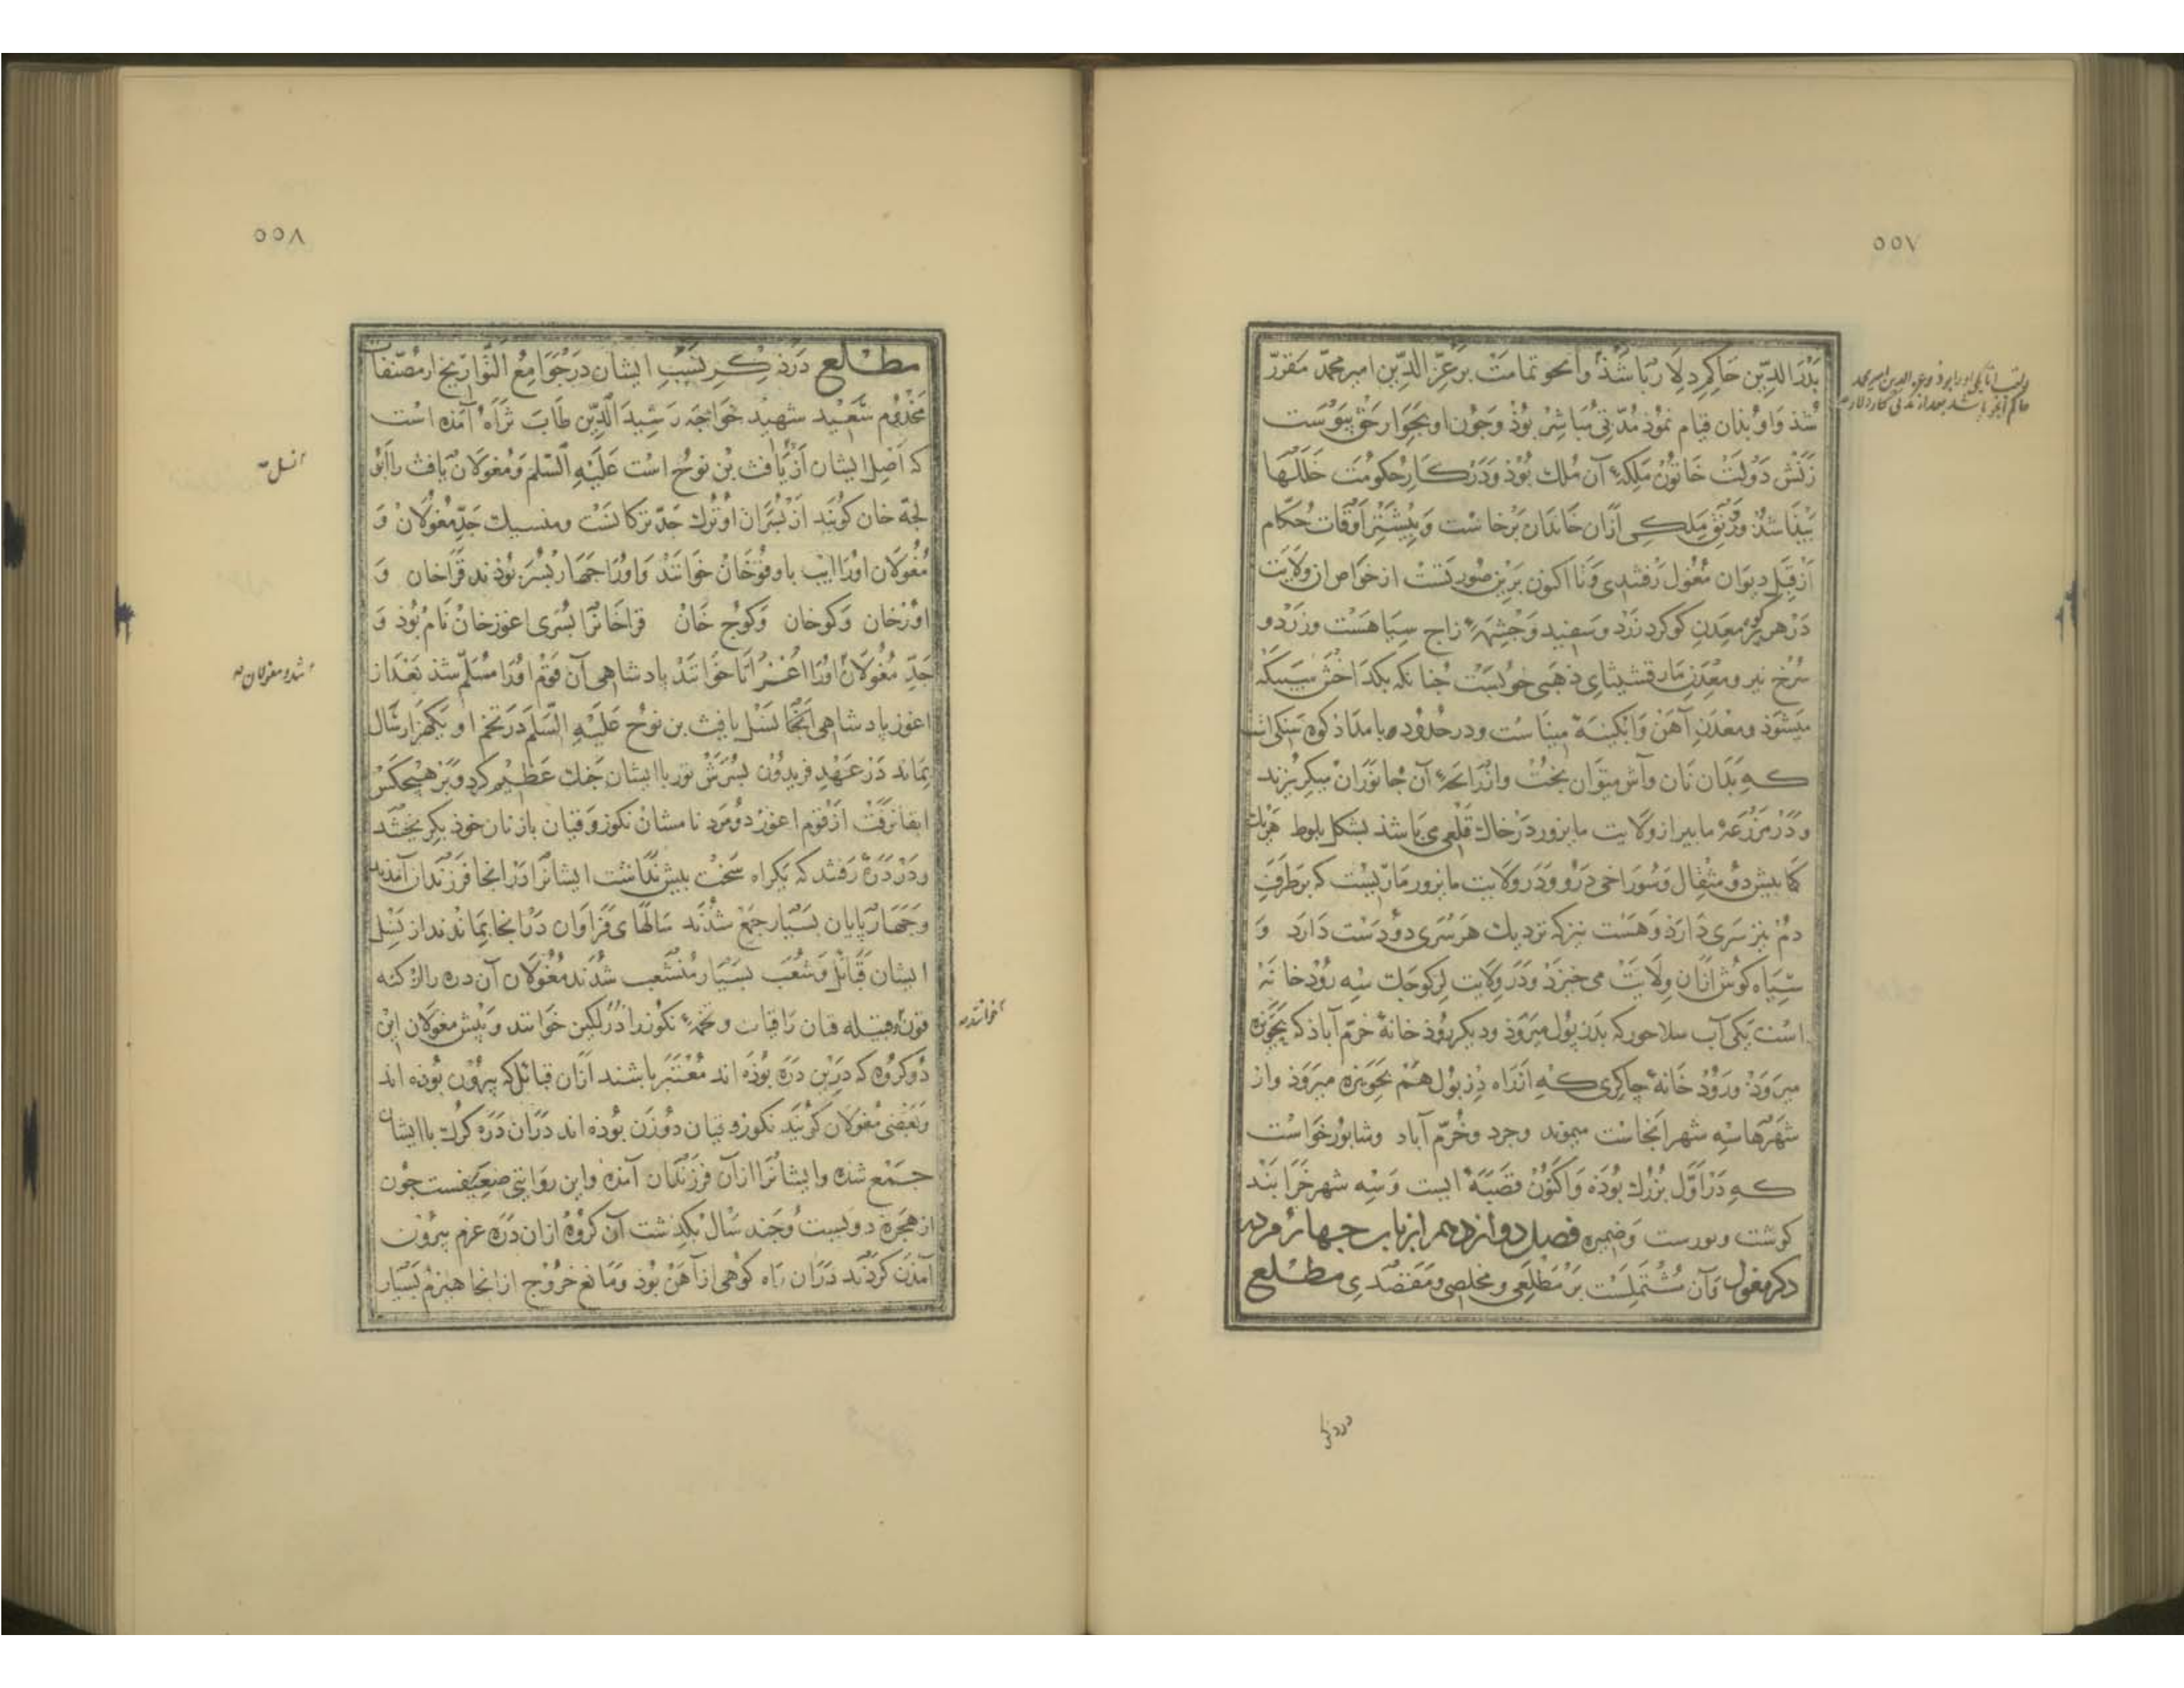 ٥٥٧
بَدْرَ الدِّین حَاکِمِ دِلَا رُبَا شَذْ وَانجو تمامَتْ بَرعِزّ الدِّین امیر محمّد مقرّر
شذ وَاو بذان قیام نمُوذ مُدّتی مُبَاشِرْ بُوذْ وَجُون او بجَوار حَقْ بیَوَسَت
زَنَشْ دَولَتْ خَاتُونْ مَلِکهٔ آن مُلك بُوذ وَدَرْکَارِ حکومت خَلَلْهَا
بَیْذَا شذ وَرَوْنَق مَلکی ازَان خَاندَان بَرخاست وَبیشتَر اَوقات حُکّام
اَز قِبَلِ دیوَان مُغول رَفتندی وَتا اکنون بَرین صُورتست از خواص ان وَلَایت
دَرْ هر کوِرَه معدن کوکرد زَرْد وسَفید وَجشمَهٔ زاج سیاهَست وزَرْد و
سُرْخ نیز ومعْدن مَارقشیثای ذهَبی خوبَست جُنانکه بکدَاختَن سَبیکَه
میَشَوذ ومعْدَنِ آهَن وَابکینَهٔ مینَاست ودر حُدُود مامداذ کوه سَنکی است
که بَدَان نَان وآش میتوَان بُخت وازرَائحهٔ آن جَانوَرَان میکریزند
ودَرْ مَزرَعهٔ مابیر از وَلَایت مابزور دَرْخاك قلعی می بَاشذ بشکل بلوط هَریك
کمَا بیش دُو مثقال وَسُوراخی دَرُو وَدَر وَلَایت مابزور مَاریست که برطَرَفِ
دُمْ نیز سَری دَارَذ وَهَست نیز که نزدیك هَر سَری دوُ دَست دَارَد وَ
سیَاه کوُش ازَان وِلَایَت می خیزَذ وَدَر وِلَایت لرکوجك سِه رُوذ خانَهٔ
است یکی آب سلاحور که بدزبُول میرَوَذ ودیکر روُذ خانهٔ خرّم آباذ که بحَویزه
میرَوَذ ورُوذ خانهٔ جاکِری که ازرَاه دِزبُول هَم بحَویزه میرَوَذ واز
شهَرهَا سِه شهر اَنجاست میموند وجرد وخُرّم آباد وشابور خَوَاست
که دَراَوَّل بُزُرك بُوَذه وَاکنوُن قصَبَهٔ ایست وَسِه شهر خَرَابَند
کوشت وبورست وَضیمره فصل دوازدهم ازباب جهارم در
ذکر مغول وَآن مُشتَمِلَست بَر مَطلَعی ومخلصی ومَقصَدی مطلع
در ذکر
٥٥٨
مطلع دَرْ ذِکر نَسَبِ ایشان دَرجَوَامِعُ التَّوَاریخ ازمُصنّفات
مَخدُوم سَعید شهید خَواجَه رَشیدَ الدّین طَابَ ثَرَاه آمذه است
که اَصل ایشان اَز یَافث بْن نوح است عَلَیْهِ السّلم وَمُغولَان یافث را اَبُو
لجَه خان کوُیند اَز بُسَران او تُرك جَدّ ترکانست ومنسیك جَدّ مُغولَان وَ
مُغولَان اورَا ایب باوقوُخَان خَوانَند وَاورَا جهَار بُسَر بُوذند قَراخان وَ
اوُرْخان وَکوخان وَکوُج خَان قراخَانرَا بُسَری اغوزخان نَام بُوذ وَ
جَدّ مُغولَان اورَا اُغُز اَتَا خَوانَند بادشاهی آن قوَم اورَا مُسَلّم شذ بَعْدَاز
اغوز باد شاهی اَنجَا بنَسل یافث بن نوُح عَلَیْهِ السَّلم دَر تُخم او یکهزار سَال
بماند دَر عَهْدِ فریدوُن بُسَرَش تور باایشان جَنك عَظیم کرد وَبَر هیجکس
ابقا نرَفت از قَوم اغوز دُو مَرد نامشان نکوز وَقیان بازنان خوذ بکریختند
ودَر دَرّه رَفتند که یکراه سَخت بیش نَدَاشت ایشانرَا دَرانجا فرزَندان آمَذند
وَجهَار بَایان بسیَار جَمع شذند سَالهَای فَرَاوَان دَرانجا بماندند از نسل
ایشان قَبائل وَشُعَب بسیَار مُنشَعب شدند مُغولَان آن دره را ارکنه
قون وقبیله قیان رَاقیات وتخمهٔ نکوز را درلکین خَوانَند وَبیش مغولان این
دُو کروُه که درین دَرّه بُوذه اند مُعْتَبَر باشند ازَان قبائل که بیروُن بُوذه اند
وَبعضی مُغولَان کوُیند نکوز وقیان دُو زَن بُوذه اند دَرَان دَرّه کرُك باایشان
جَمع شذه وایشانرَا ازآن فرزندَان آمذه واین رَوَایتی ضعیفست جُون
از هجرَة دویست وجَند سَال بکذشت آن کروُه ازان دَرّه عزم بیرُون
آمذَن کردَند دَرَان رَاه کوُهی ازآهَن بُوذ وَمَانع خروُج ازانجا هیزم بسیَار
نسل
شد ومغولان
خوانند